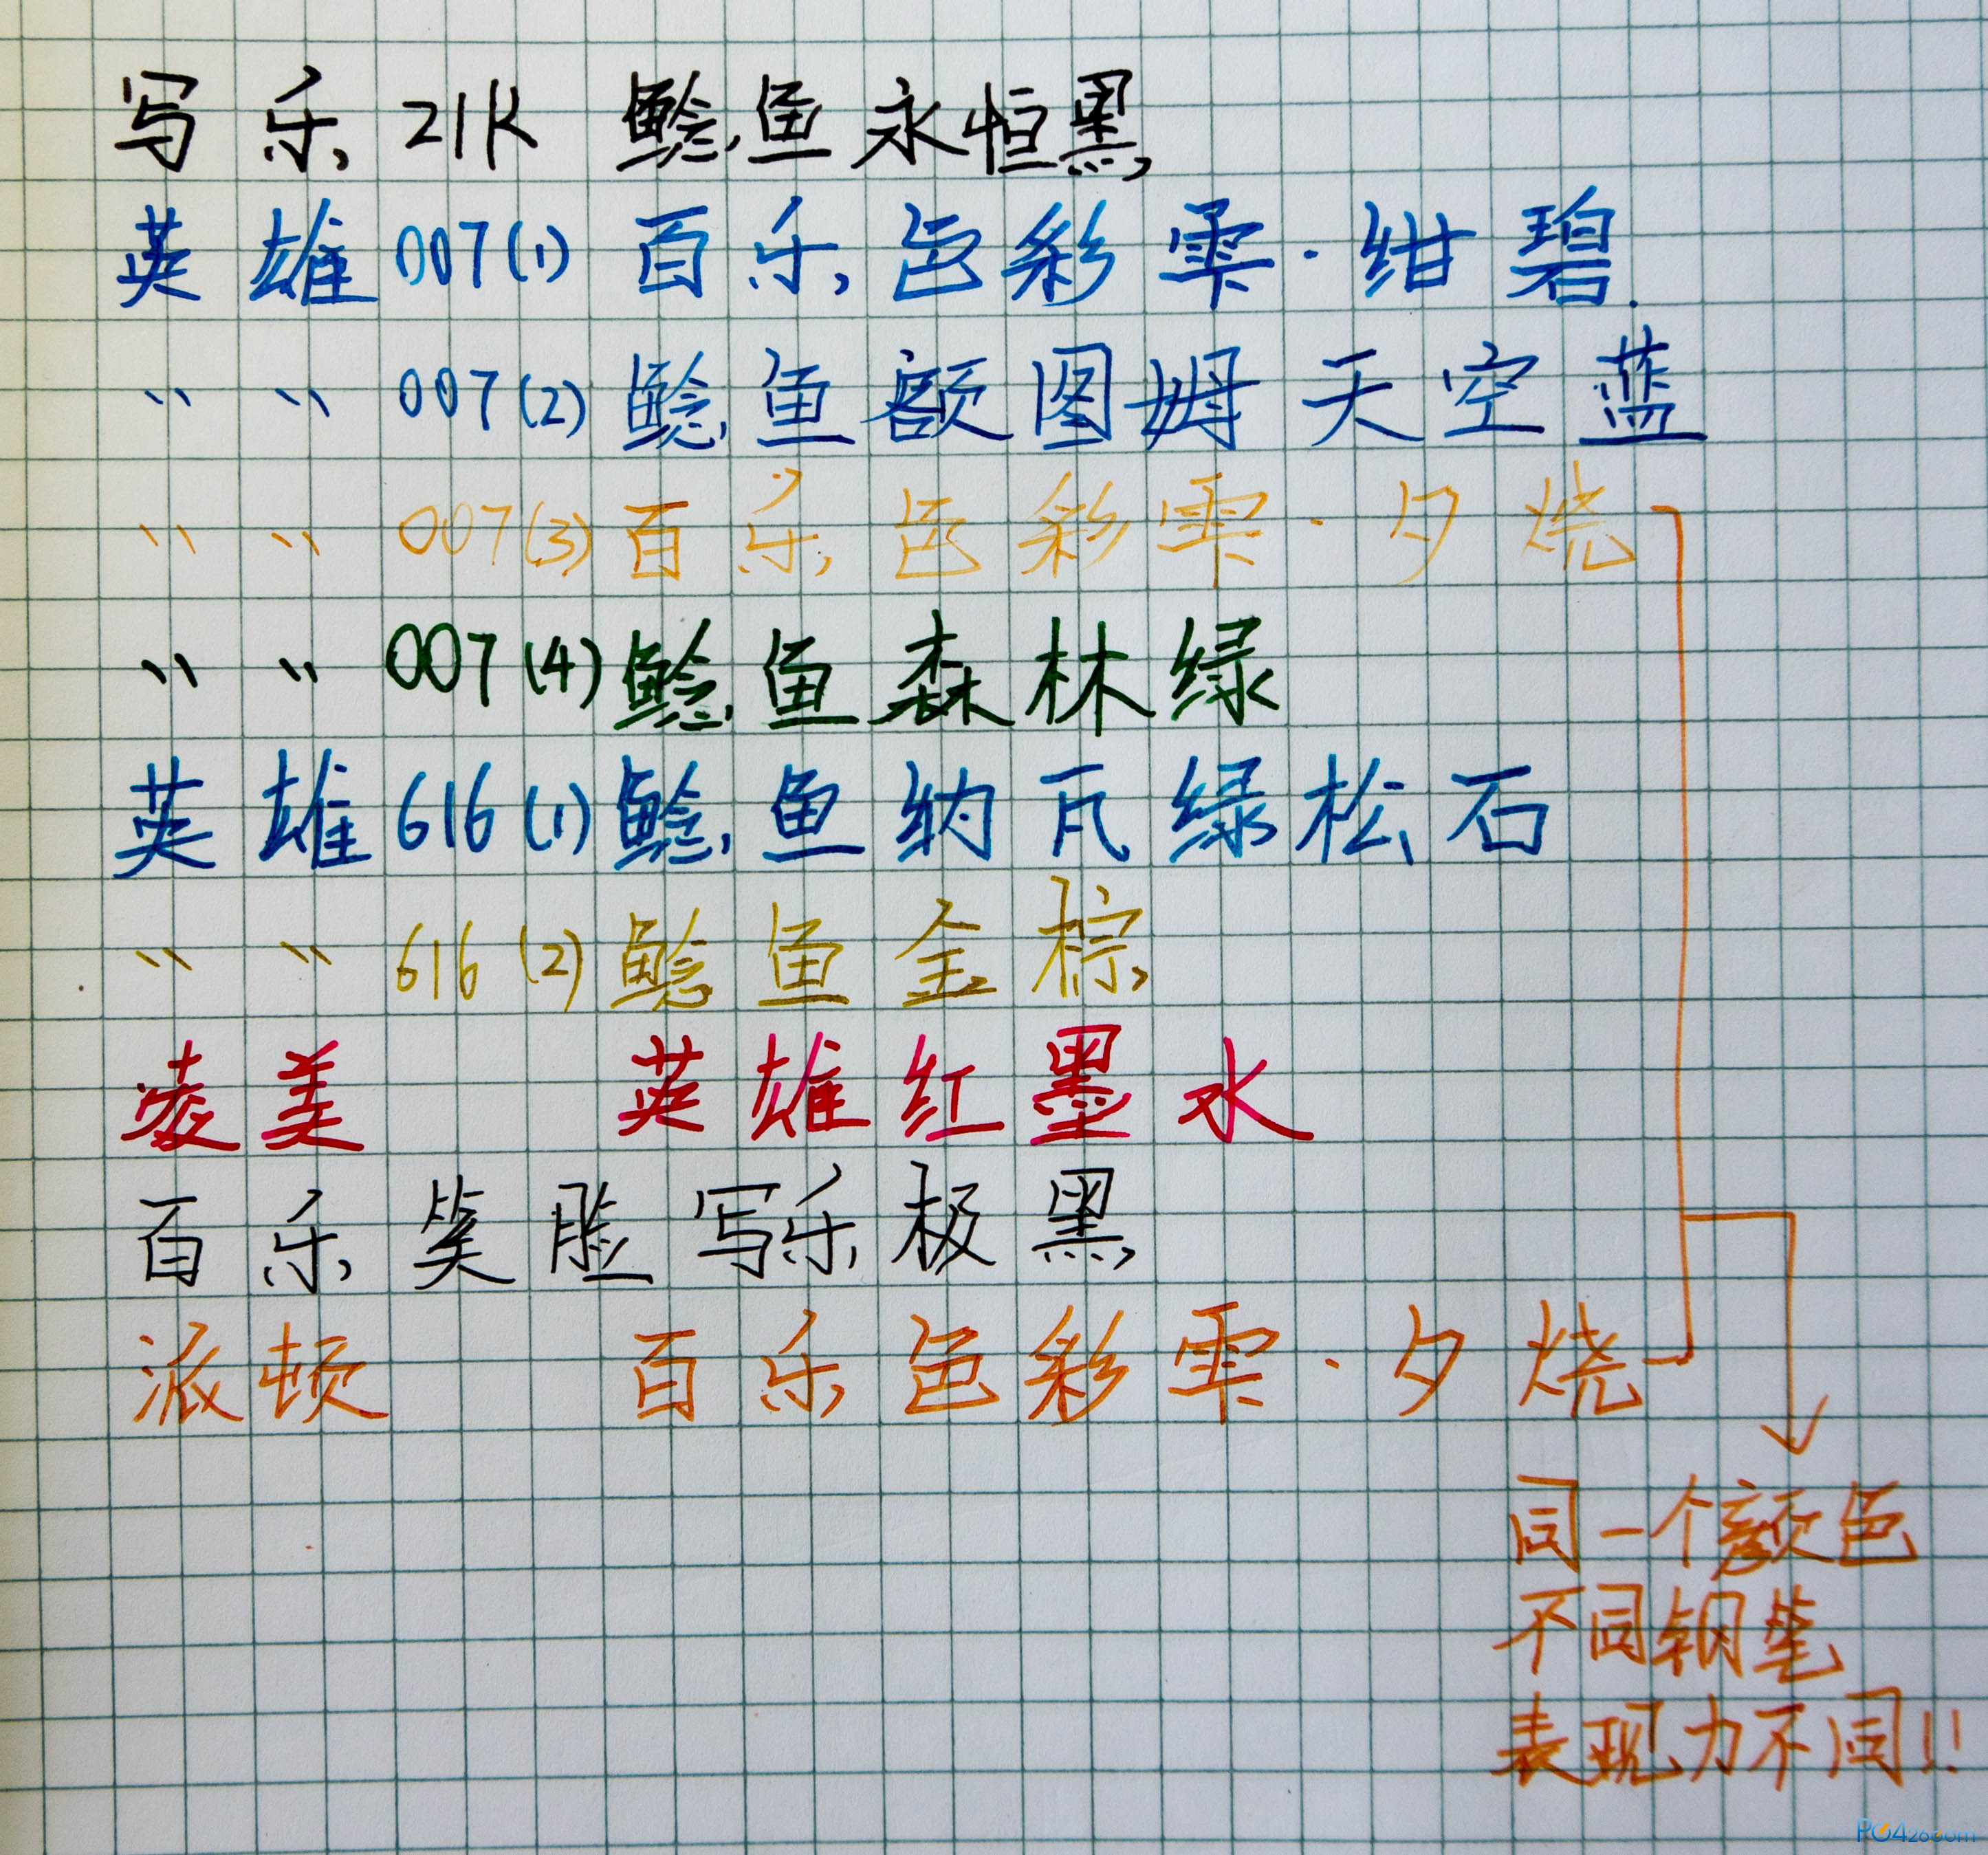 写乐21K 鲶鱼永恒黑
英雄007(1)百乐色彩雫·绀碧.
〃 〃 007(2)鲶鱼额图姆天空蓝
〃 〃 007(3)百乐色彩雫·夕烧
〃 〃 007(4)鲶鱼森林绿
英雄616(1)鲶鱼纳瓦绿松石
〃 〃 616(2)鲶鱼金棕
凌美 英雄红墨水
百乐笑脸写乐极黑
派顿 百乐色彩雫·夕烧
同一个颜色
不同钢笔
表现力不同!!